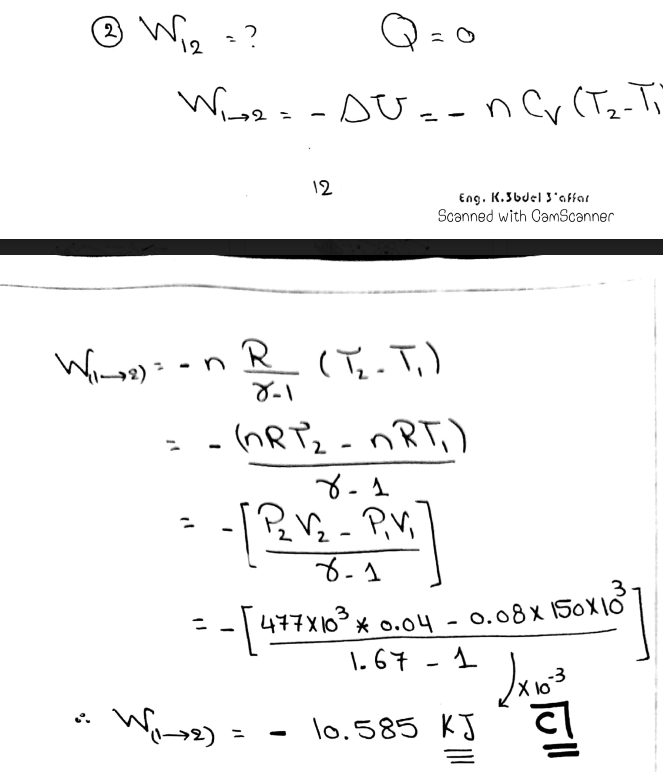 ② W₁₂ = ? Q = 0
W₁→₂ = - ΔU = - n Cᵥ (T₂ - T₁)
12
Eng. K.3bdel 3'affar
Scanned with CamScanner
W₍₁→₂₎ = - n R/(γ-1) (T₂ - T₁)
= - (nRT₂ - nRT₁)/(γ - 1)
= - [(P₂V₂ - P₁V₁)/(γ - 1)]
= - [(477×10³ * 0.04 - 0.08 × 150×10³)/(1.67 - 1)]
×10⁻³
∴ W₍₁→₂₎ = - 10.585 KJ C